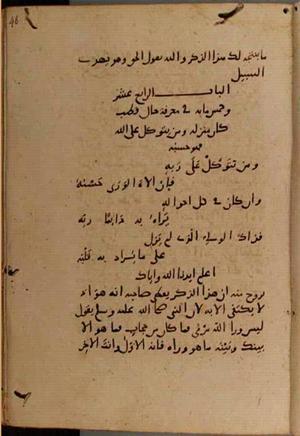 ما ينتجه لك هذا الذكر والله يقول الحق وهو يهدى
السبيل
الباب الرابع عشر
وخمس مائة فى معرفة حال قطب
كان منزله ومن يتوكل على الله
فهو حسبه
ومن يتوكل على ربه
فإن الاه الورى حسبه
وان كان فى كل احواله
يراه به دائما ربه
فذاك الولى الذى لم يزل
على ما يراد به قلبه
اعلم ايدنا الله واياك
بروح منه ان هذا الذكر يعطى صاحبه انه هو لا
لا يكتفى الا به لان النبى صلى الله عليه وسلم يقول
ليس ورا الله مرمى فما كل من حجاب فما هو الا
بينك وبينه ما هو وراه فانه الاول وانت الاخر